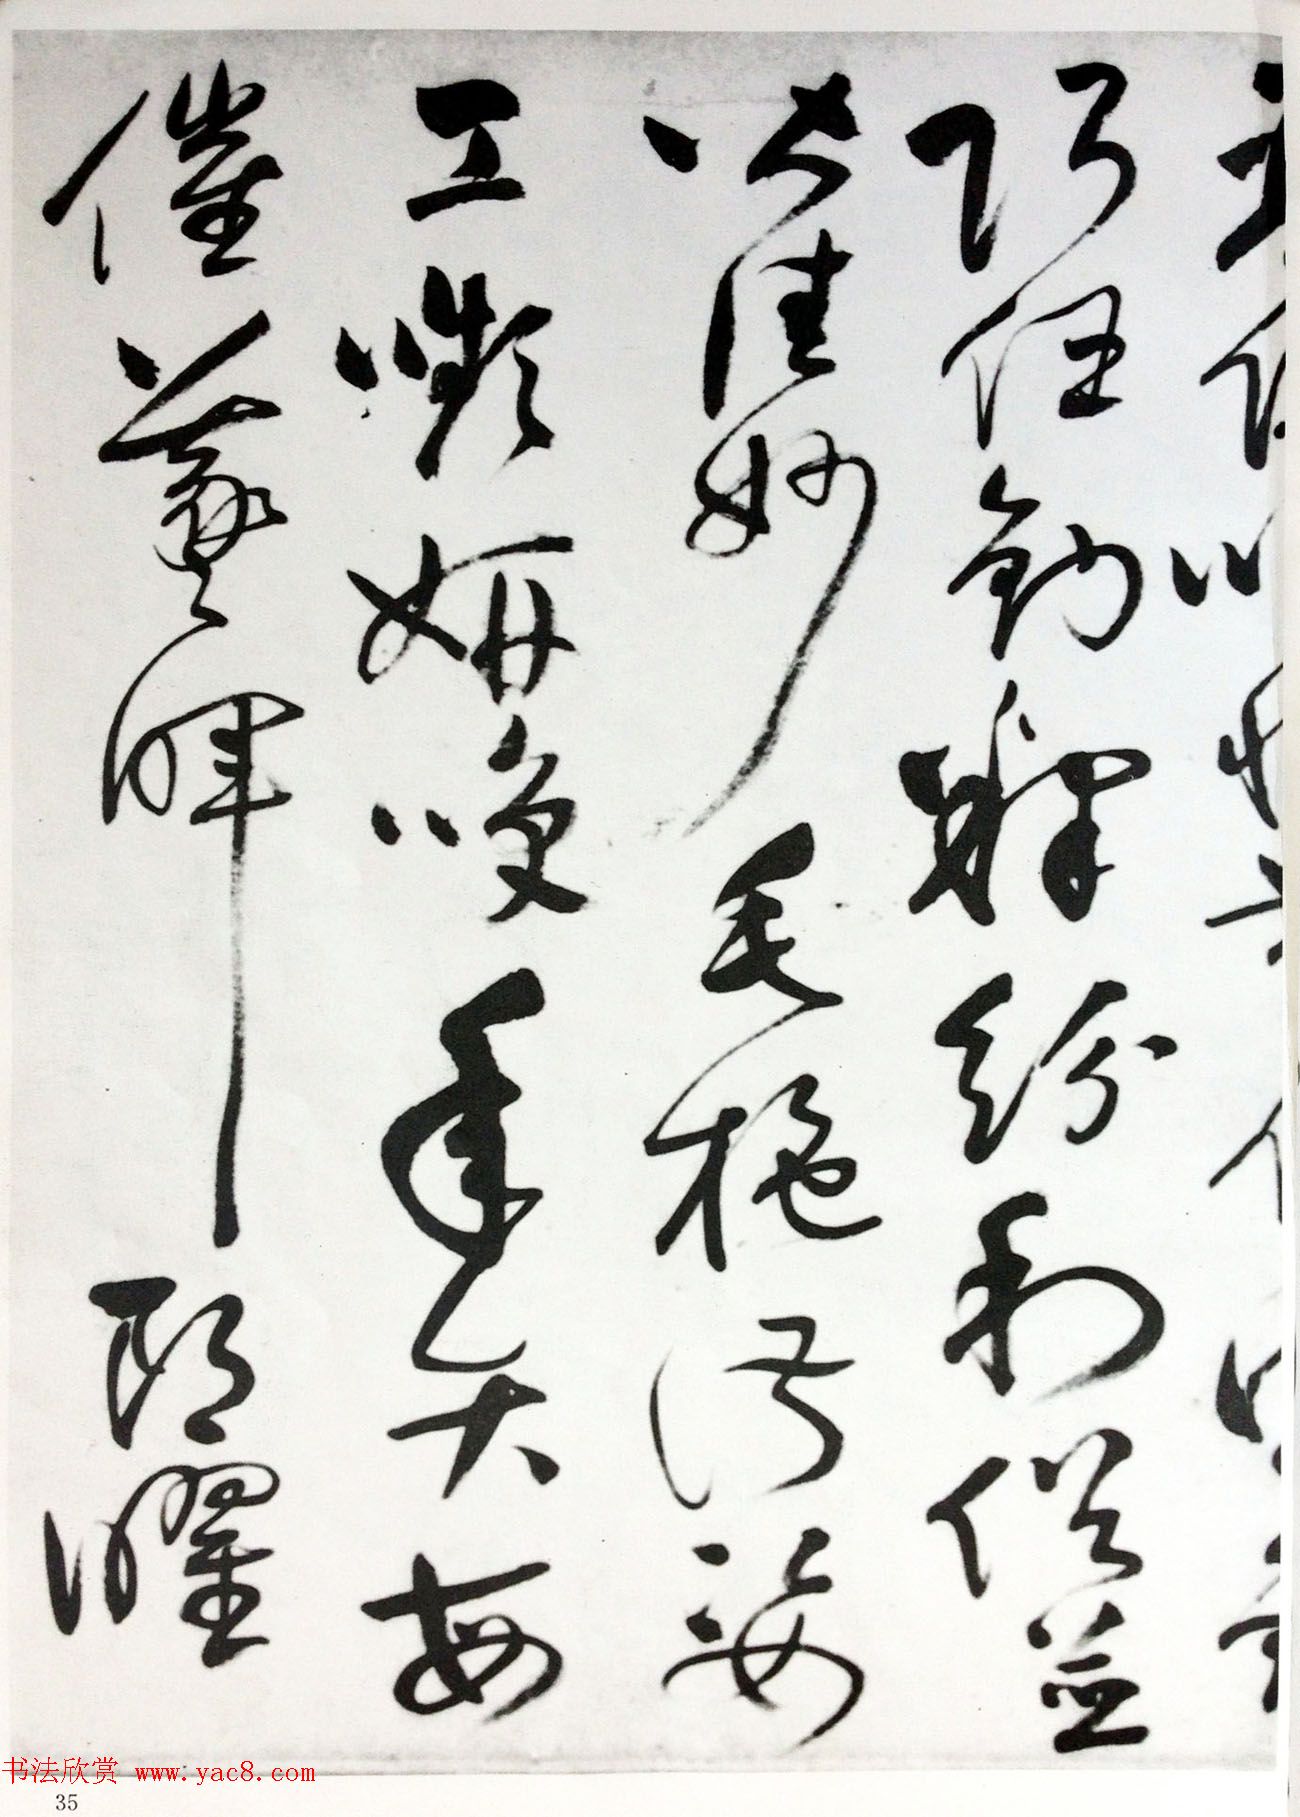 巧任釣釋紛利俗並
皆佳妙毛施淑姿
工嚬妍咲年矢每
催羲暉朗曜
书法欣赏 www.yac8.com
35